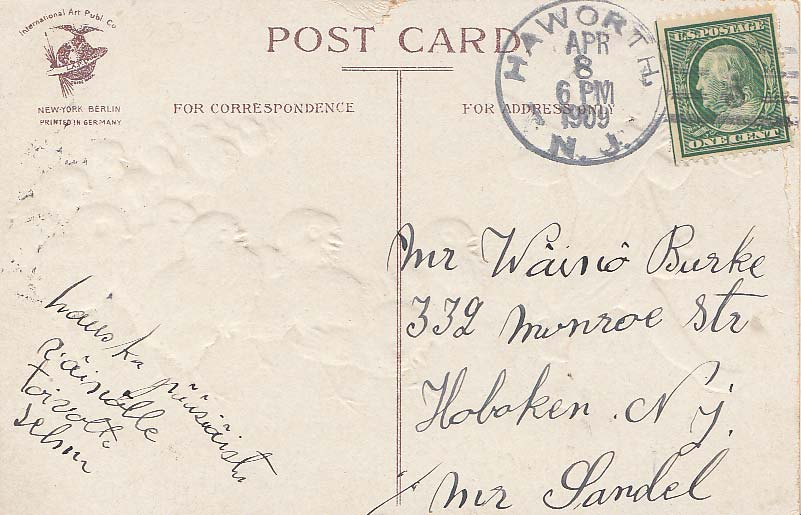 International Art Publ. Co
NEW-YORK BERLIN
PRINTED IN GERMANY
POST CARD
FOR CORRESPONDENCE
FOR ADDRESS ONLY
HAWORTH
APR
8
6 PM
1909
N. J.
U.S. POSTAGE
ONE CENT
hauska pääsiäistä
Väinölle
toivotti
Selma
Mr Wäinö Burke
332 Munroe Str
Hoboken. N J.
Mr Sandel